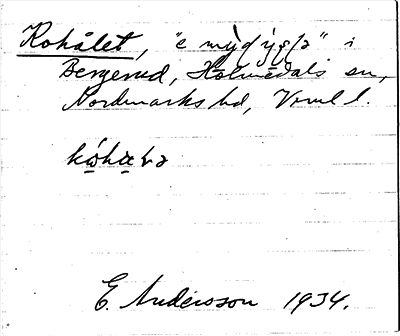 Kohålet, "e mỳdỳgḷə" i
Bergerud, Holmedals sn,
Nordmarks hd, Vrml l.
kóhaḷə
E. Andersson 1934.